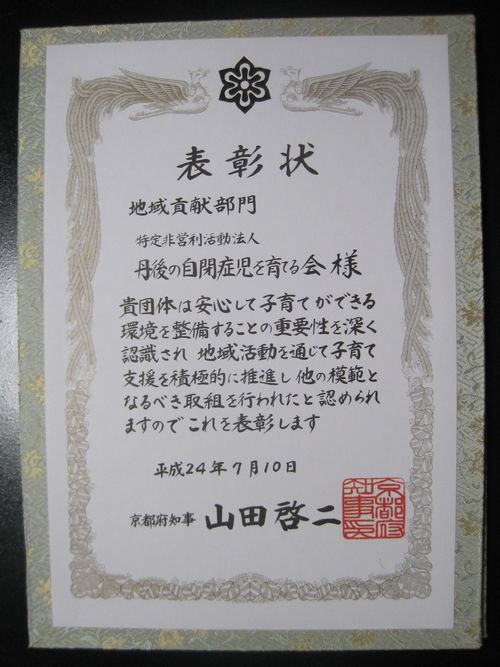 表彰状
地域貢献部門
特定非営利活動法人
丹後の自閉症児を育てる会 様
貴団体は安心して子育てができる
環境を整備することの重要性を深く
認識され 地域活動を通じて子育て
支援を積極的に推進し他の模範と
なるべき取組を行われたと認められ
ますのでこれを表彰します
平成24年7月10日
京都府知事 山田啓二
京都府知事印